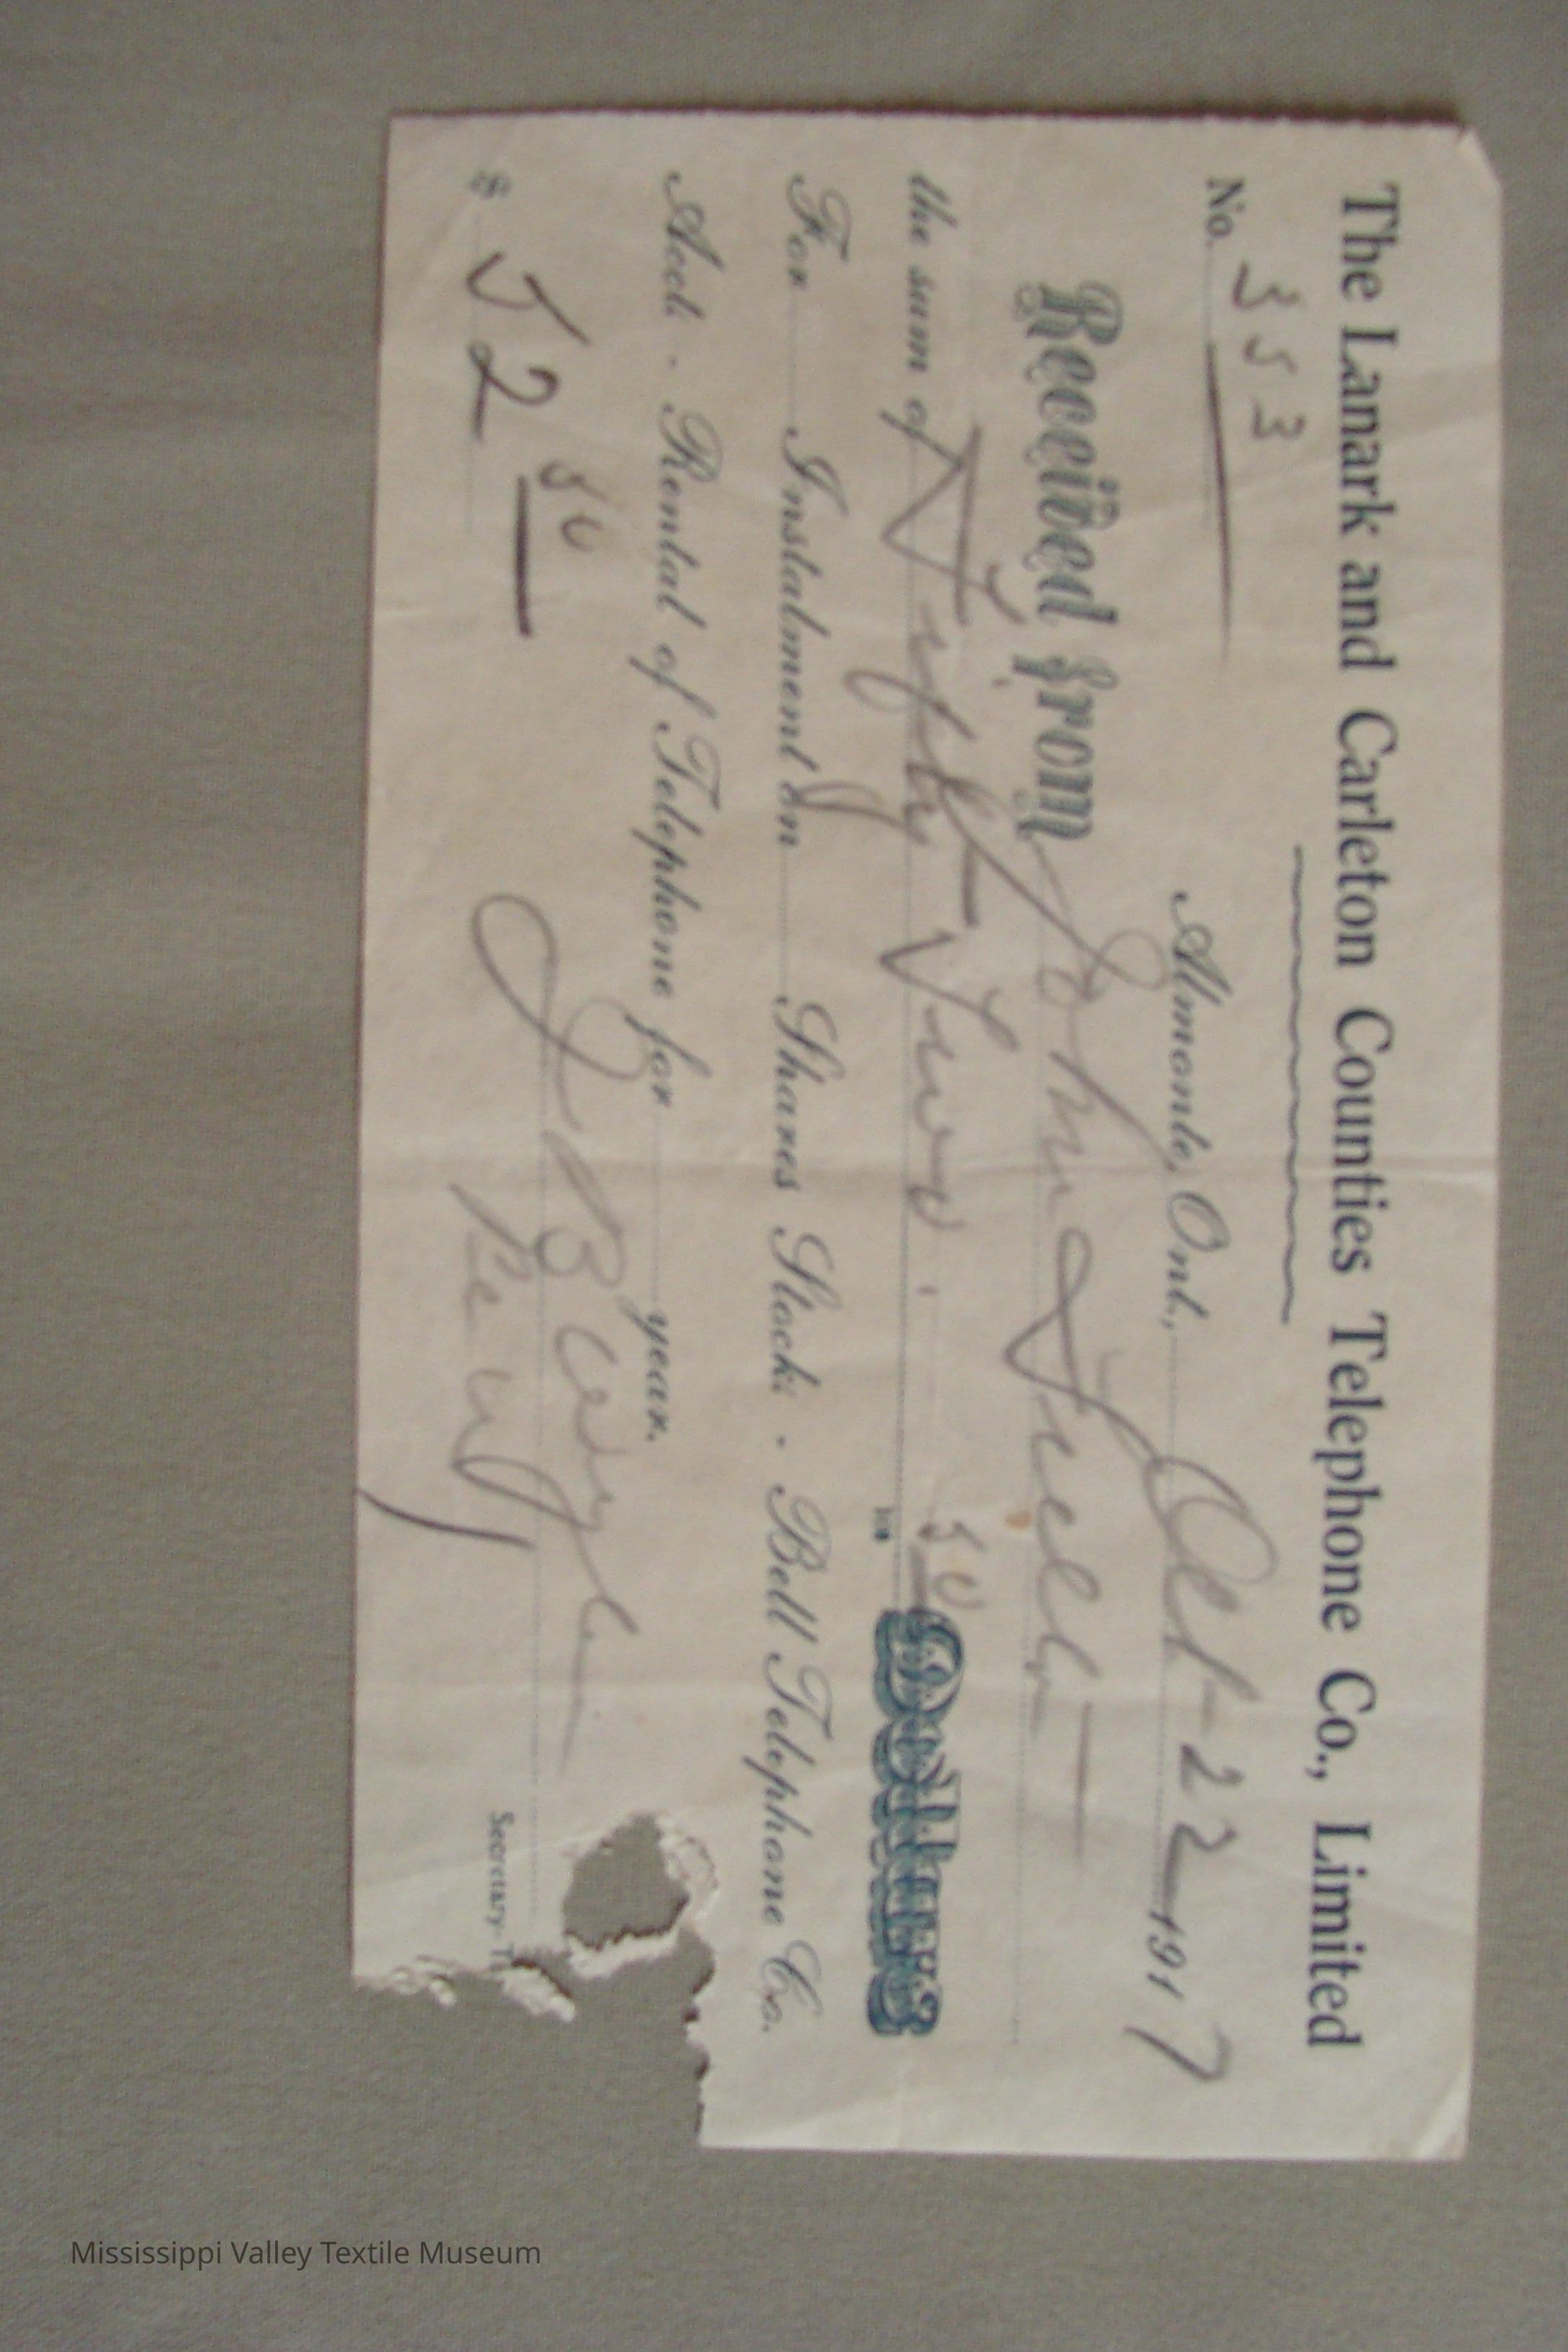 The Lanark and Carleton Counties Telephone Co., Limited
No. 353
Almonte, Ont., Oct 22 1917
Received from John
the sum of Fifty Two 50/100 Dollars
For Instalment on Shares Stock. - Bell Telephone Co.
Acct. - Rental of Telephone for year.
$ 52 50
J B Wylie
Secretary-T
Mississippi Valley Textile Museum